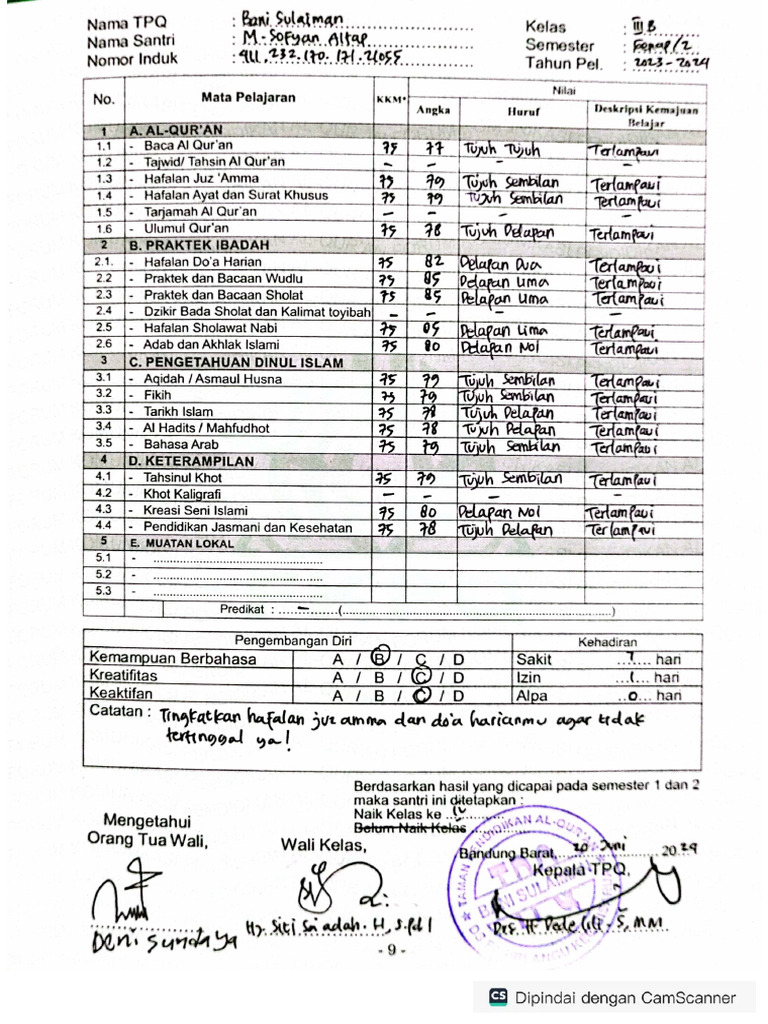 Nama TPQ : Bani Sulaiman
Nama Santri : M-Sofyan Altap
Nomor Induk : 411.232.170.171.21055
Kelas : III B
Semester : Genap/2
Tahun Pel. : 2023-2024
No. Mata Pelajaran KKM* Nilai
Angka Huruf Deskripsi Kemajuan Belajar
1 A. AL-QUR'AN
1.1 - Baca Al Qur'an 75 77 Tujuh Tujuh Terlampaui
1.2 - Tajwid/ Tahsin Al Qur'an - - - -
1.3 - Hafalan Juz 'Amma 75 79 Tujuh Sembilan Terlampaui
1.4 - Hafalan Ayat dan Surat Khusus 75 79 Tujuh Sembilan Terlampaui
1.5 - Tarjamah Al Qur'an - - - -
1.6 - Ulumul Qur'an 75 78 Tujuh Delapan Terlampaui
2 B. PRAKTEK IBADAH
2.1. - Hafalan Do'a Harian 75 82 Delapan Dua Terlampaui
2.2 - Praktek dan Bacaan Wudlu 75 85 Delapan Lima Terlampaui
2.3 - Praktek dan Bacaan Sholat 75 85 Delapan Lima Terlampaui
2.4 - Dzikir Bada Sholat dan Kalimat toyibah - - - -
2.5 - Hafalan Sholawat Nabi 75 85 Delapan Lima Terlampaui
2.6 - Adab dan Akhlak Islami 75 80 Delapan Nol Terlampaui
3 C. PENGETAHUAN DINUL ISLAM
3.1 - Aqidah / Asmaul Husna 75 79 Tujuh Sembilan Terlampaui
3.2 - Fikih 75 79 Tujuh Sembilan Terlampaui
3.3 - Tarikh Islam 75 78 Tujuh Delapan Terlampaui
3.4 - Al Hadits / Mahfudhot 75 78 Tujuh Delapan Terlampaui
3.5 - Bahasa Arab 75 79 Tujuh Sembilan Terlampaui
4 D. KETERAMPILAN
4.1 - Tahsinul Khot 75 79 Tujuh Sembilan Terlampaui
4.2 - Khot Kaligrafi - - - -
4.3 - Kreasi Seni Islami 75 80 Delapan Nol Terlampaui
4.4 - Pendidikan Jasmani dan Kesehatan 75 78 Tujuh Delapan Terlampaui
5 E. MUATAN LOKAL
5.1 - ..........
5.2 - ..........
5.3 - ..........
Predikat : ...-...(..........)
Pengembangan Diri Kehadiran
Kemampuan Berbahasa A / B / C / D Sakit ..7... hari
Kreatifitas A / B / C / D Izin ..1... hari
Keaktifan A / B / C / D Alpa ..0... hari
Catatan : Tingkatkan hafalan juz amma dan do'a harianmu agar tidak
tertinggal ya!
Berdasarkan hasil yang dicapai pada semester 1 dan 2
maka santri ini ditetapkan :
Naik Kelas ke ..IV..
Belum Naik Kelas ..........
Bandung Barat, 20 Juni 2024
Mengetahui
Orang Tua Wali,
Wali Kelas,
Kepala TPQ,
TAMAN PENDIDIKAN AL-QUR'AN
TPQ
BANI SULAIMAN
Deni Sundaya
Hj. Siti Sa'adah. H, S.Pd I
- 9 -
CS Dipindai dengan CamScanner